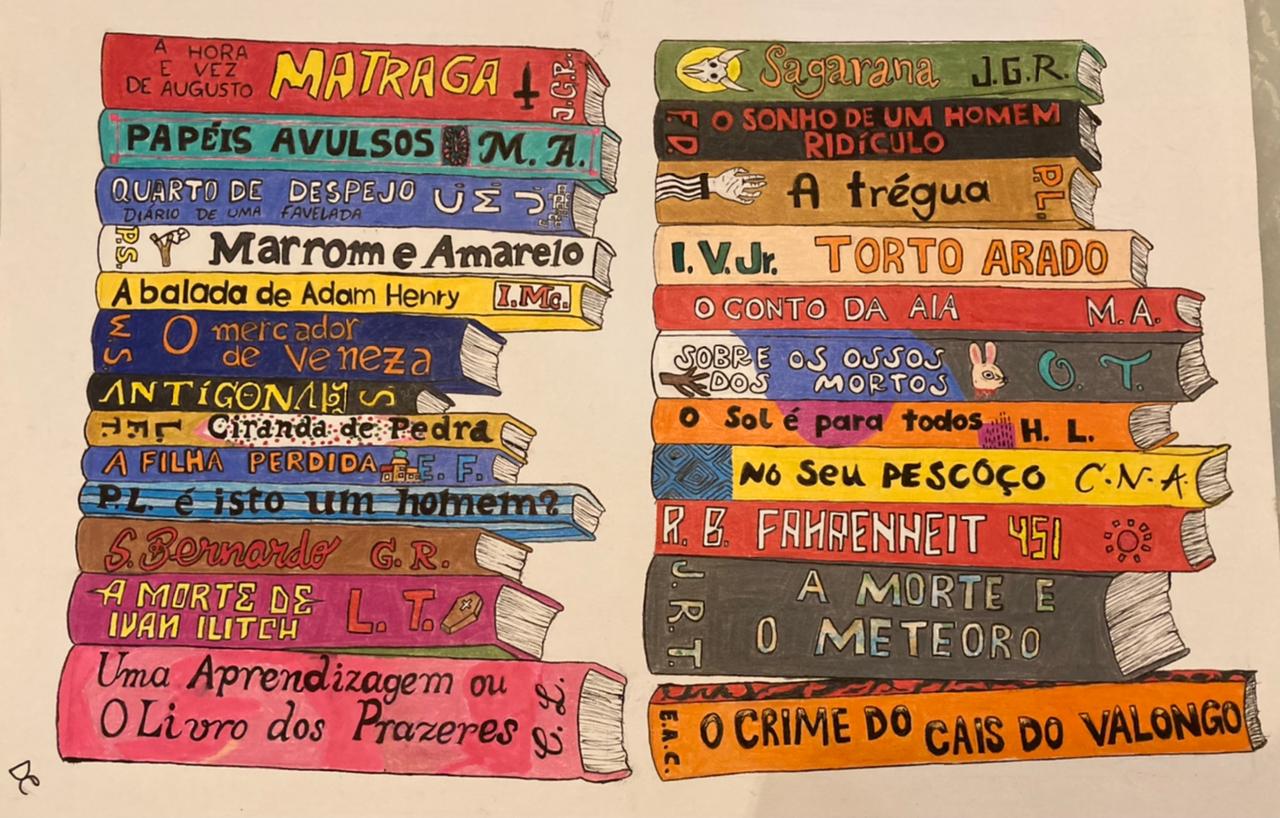 A HORA
E VEZ
DE AUGUSTO
MATRAGA
J.G.R.
PAPÉIS AVULSOS M. A.
QUARTO DE DESPEJO
DIÁRIO DE UMA FAVELADA
C. M. J.
P.S. Marrom e Amarelo
A balada de Adam Henry I.Mc.
W. S.
O mercador
de veneza
ANTÍGONA S
L. F. T. Ciranda de Pedra
A FILHA PERDIDA E. F.
P.L. é isto um homem?
S. Bernardo G. R.
A MORTE DE
IVAN ILITCH
L. T.
Uma Aprendizagem ou
O Livro dos Prazeres
C. L.
Sagarana J.G.R.
F.D.
O SONHO DE UM HOMEM
RIDÍCULO
A trégua P.L.
I.V.Jr. TORTO ARADO
O CONTO DA AIA M.A.
SOBRE OS OSSOS
DOS MORTOS
O. T.
O Sol é para todos H. L.
No Seu PESCOÇO C.N.A.
R. B. FAHRENHEIT 451
J.R.T.
A MORTE E
O METEORO
E.A.C. O CRIME DO CAIS DO VALONGO